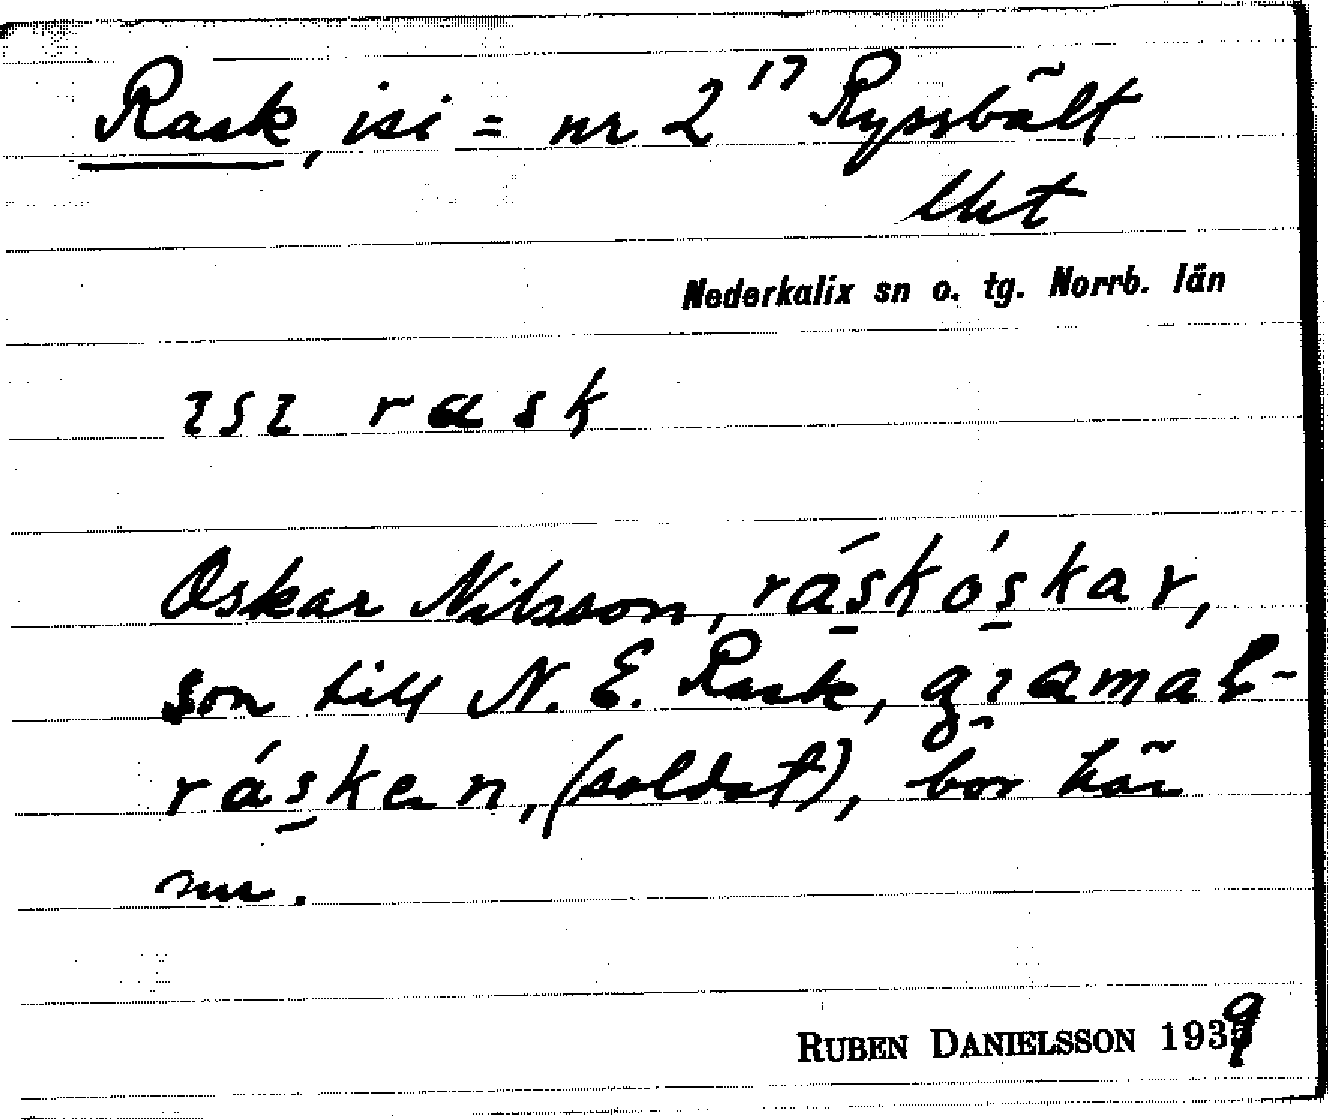 Rask, isi = nr 2¹⁷ Ryssbält
lht
Nederkalix sn o. tg. Norrb. län
ɩsɩ rask
Oskar Nilsson, ráskóskar,
son till N. E. Rask,
rásken, (soldat), bor här
nu.
RUBEN DANIELSSON 1939